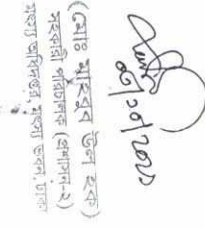 ০৭/১০/২০১১
(মোঃ মাহবুব উল হক)
সহকারী পরিচালক (প্রশাসন-২)
মৎস্য অধিদপ্তর, মৎস্য ভবন, ঢাকা